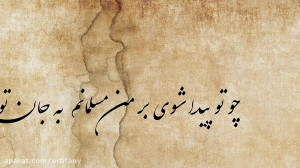 چو تو پیدا شوی بر من مسلمانم به جان تو
aparat.com/erfitany